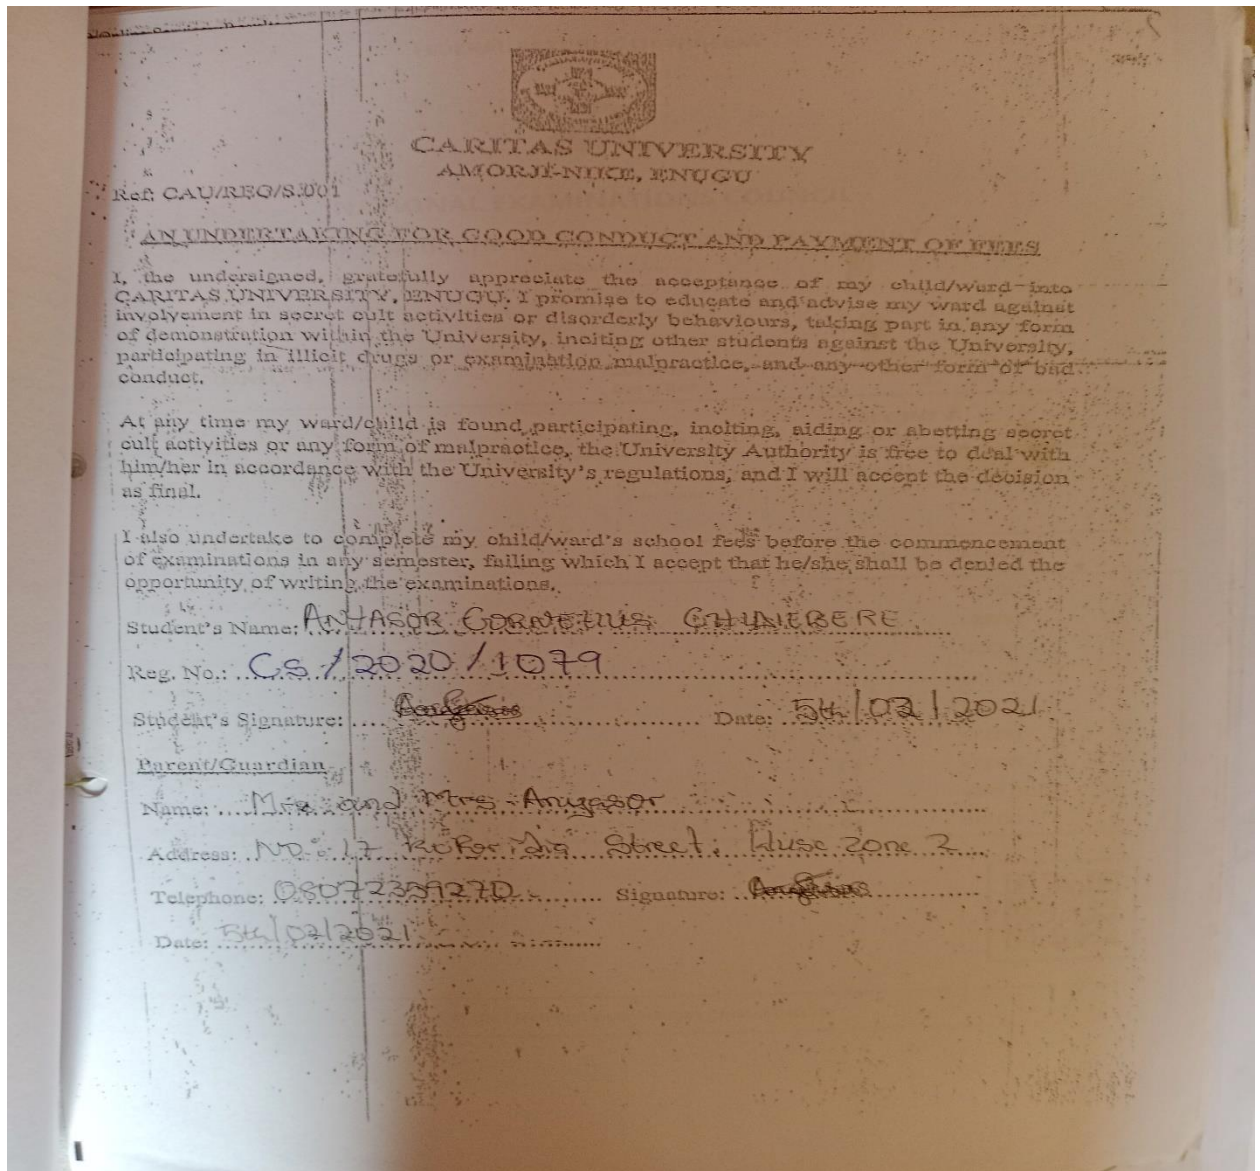 CARITAS UNIVERSITY
AMORJI-NIKE, ENUGU
Ref: CAU/REG/S.001
AN UNDERTAKING FOR GOOD CONDUCT AND PAYMENT OF FEES
I, the undersigned, gratefully appreciate the acceptance of my child/ward into
CARITAS UNIVERSITY, ENUGU. I promise to educate and advise my ward against
involvement in secret cult activities or disorderly behaviours, taking part in any form
of demonstration within the University, inciting other students against the University,
participating in illicit drugs or examination malpractice, and any other form of bad
conduct.
At any time my ward/child is found participating, inciting, aiding or abetting secret
cult activities or any form of malpractice, the University Authority is free to deal with
him/her in accordance with the University's regulations, and I will accept the decision
as final.
I also undertake to complete my child/ward's school fees before the commencement
of examinations in any semester, failing which I accept that he/she shall be denied the
opportunity of writing the examinations.
Student's Name: ANYASOR CORNELIUS CHINEBERE
Reg. No.: CS/2020/1079
Student's Signature: Date: 5th/02/2021
Parent/Guardian
Name: Mrs and Mrs Anyasor
Address: NO 17 Street, Zone 2
Telephone: 08072359270 Signature:
Date: 5th/02/2021